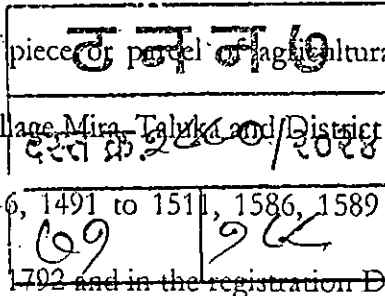 piece or parcel of agricultura
ट न न ७
llage Mira, Taluka and District
दस्त क्र. २८८०/२०२४
6, 1491 to 1511, 1586, 1589
७१ १८८
1792 and in the registration D